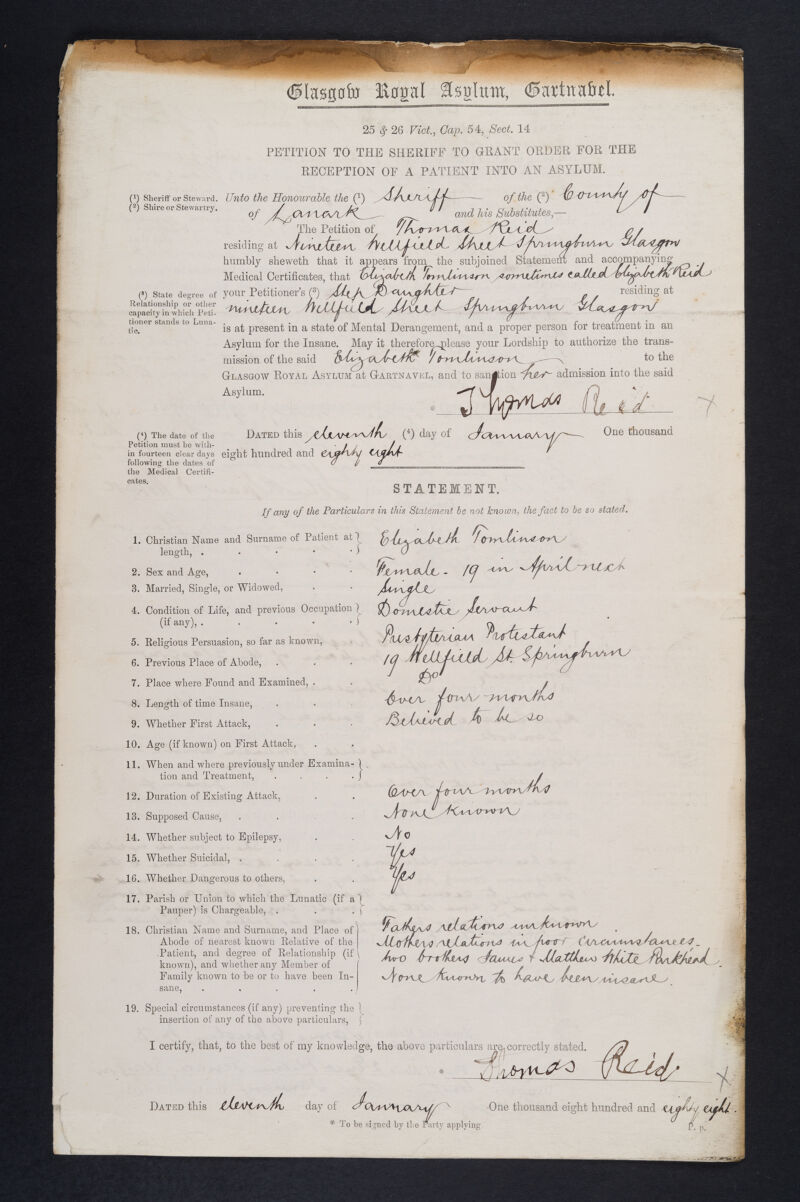 Glasgow Royal Asylum, Gartnabel.
25 & 26 Vict., Cap. 54, Sect. 14
PETITION TO THE SHERIFF TO GRANT ORDER FOR THE
RECEPTION OF A PATIENT INTO AN ASYLUM.
(¹) Sheriff or Steward.
(²) Shire or Stewartry.
Unto the Honourable the (¹) Sheriff of the (²) County of
of Lanark and his Substitutes,—
The Petition of Thomas Reid
residing at Nineteen Wellfield Street Springburn Glasgow
humbly sheweth that it appears from the subjoined Statement and accompanying
Medical Certificates, that Elizabeth Tomlinson sometimes called Elizabeth Reid
(³) State degree of
Relationship or other
capacity in which Peti-
tioner stands to Luna-
tic.
your Petitioner's (³) Step Daughter residing at
nineteen Wellfield Street Springburn Glasgow
is at present in a state of Mental Derangement, and a proper person for treatment in an
Asylum for the Insane. May it therefore please your Lordship to authorize the trans-
mission of the said Elizabeth Tomlinson to the
GLASGOW ROYAL ASYLUM AT GARTNAVEL, and to sanction her admission into the said
Asylum.
Thomas Reid ×
(⁴) The date of the
Petition must be with-
in fourteen clear days
following the dates of
the Medical Certifi-
cates.
DATED this eleventh (⁴) day of January One thousand
eight hundred and eighty eight
STATEMENT.
If any of the Particulars in this Statement be not known, the fact to be so stated.
1. Christian Name and Surname of Patient at
length, . Elizabeth Tomlinson
2. Sex and Age, Female - 19 in April next
3. Married, Single, or Widowed, Single
4. Condition of Life, and previous Occupation
(if any), . Domestic Servant
5. Religious Persuasion, so far as known, Presbyterian Protestant
6. Previous Place of Abode, 19 Wellfield St. Springburn
7. Place where Found and Examined, Do
8. Length of time Insane, Over four months
9. Whether First Attack, Believed to be so
10. Age (if known) on First Attack,
11. When and where previously under Examina-
tion and Treatment,
12. Duration of Existing Attack, Over four months
13. Supposed Cause, None known
14. Whether subject to Epilepsy, No
15. Whether Suicidal, Yes
16. Whether Dangerous to others, Yes
17. Parish or Union to which the Lunatic (if a
Pauper) is Chargeable,
18. Christian Name and Surname, and Place of
Abode of nearest known Relative of the
Patient, and degree of Relationship (if
known), and whether any Member of
Family known to be or to have been In-
sane,
Fathers relations unknown.
Mothers relations in poor circumstances.
two brothers James & Matthew White Parkhead.
None known to have been insane.
19. Special circumstances (if any) preventing the
insertion of any of the above particulars,
I certify, that, to the best of my knowledge, the above particulars are correctly stated.
Thomas Reid ×
DATED this eleventh day of January One thousand eight hundred and eighty eight.
* To be signed by the Party applying